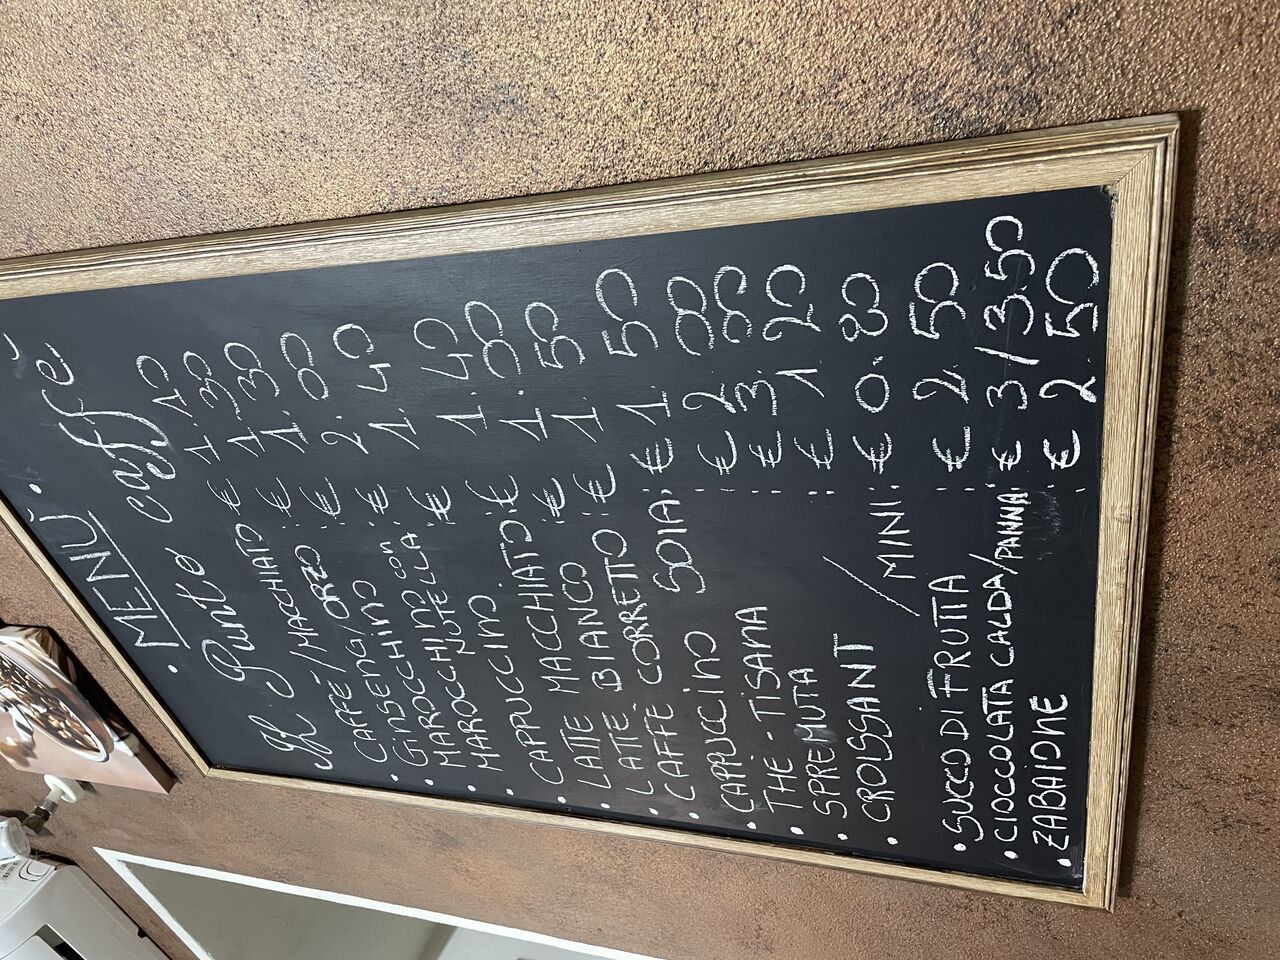 • MENÙ •
Il Punto caffè
CAFFÈ / MACCHIATO € 1.10
GINSENG / ORZO : € 1.30
MAROCCHINO : € 1.30
MAROCCHINO con NUTELLA : € 2.00
CAPPUCCINO : € 1.40
LATTE MACCHIATO : € 1.40
LATTE BIANCO : € 1.00
CAFFE CORRETTO : € 1.50
CAPPUCCINO SOIA : € 1.50
THE - TISANA : € 2.00
SPREMUTA : € 3.00
CROISSANT : € 1.20
/ MINI : € 0.80
SUCCO DI FRUTTA : € 2.50
CIOCCOLATA CALDA/PANNA : € 3/3.50
ZABAIONE : € 2.50